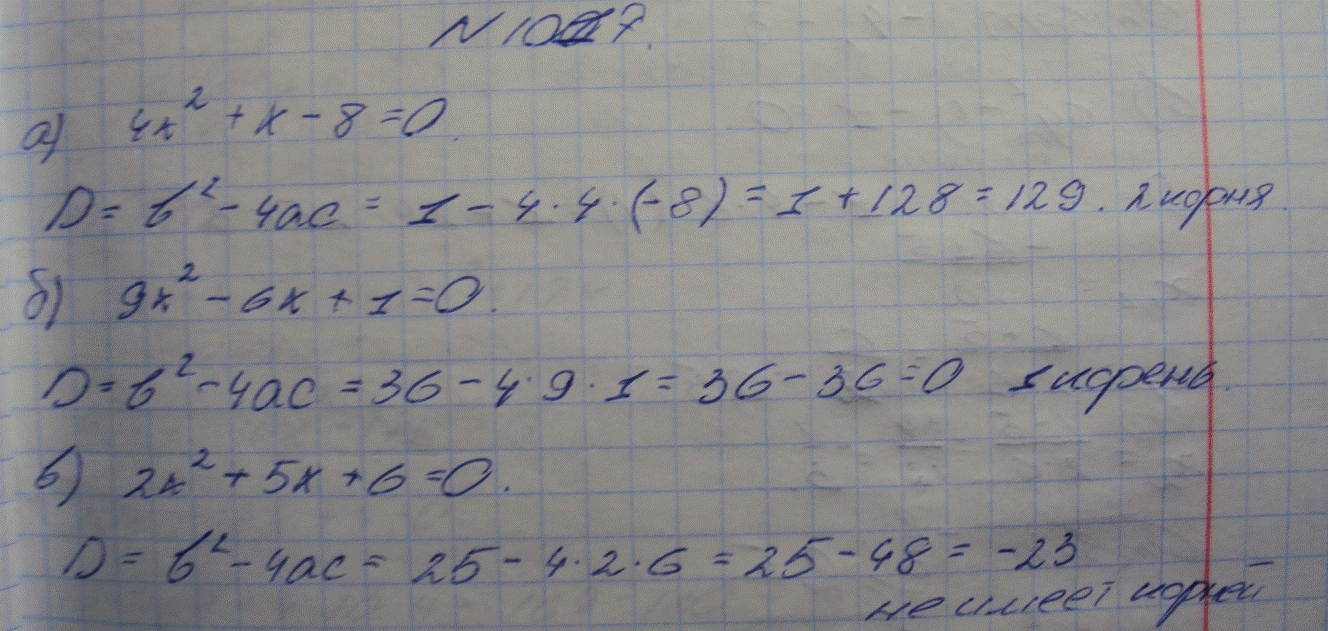 N 1027.
а) 4x² + x - 8 = 0.
D = b² - 4ac = 1 - 4 · 4 · (-8) = 1 + 128 = 129. 2 корня.
б) 9x² - 6x + 1 = 0.
D = b² - 4ac = 36 - 4 · 9 · 1 = 36 - 36 = 0 1 корень.
в) 2x² + 5x + 6 = 0.
D = b² - 4ac = 25 - 4 · 2 · 6 = 25 - 48 = -23
не имеет корней